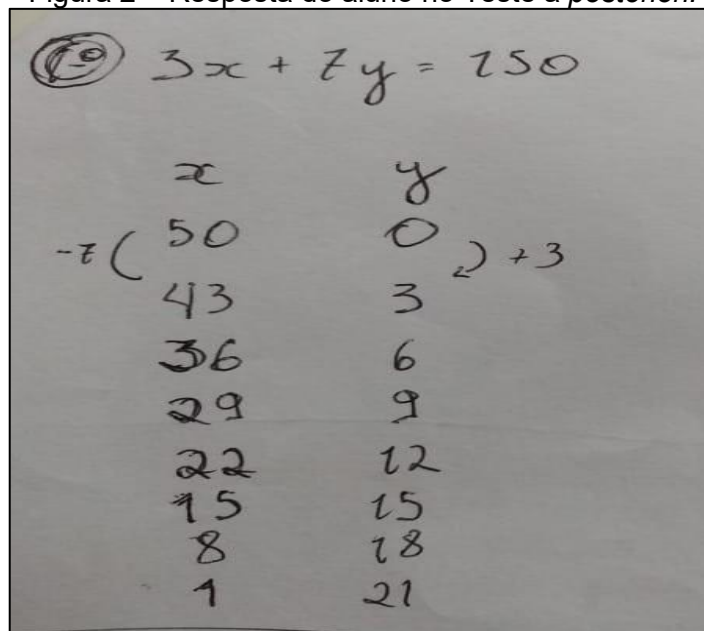 Figura 2 – Resposta do aluno no Teste a posteriori.
1º 3x + 7y = 150
x y
-7 ( 50 0 ) +3
43 3
36 6
29 9
22 12
15 15
8 18
1 21